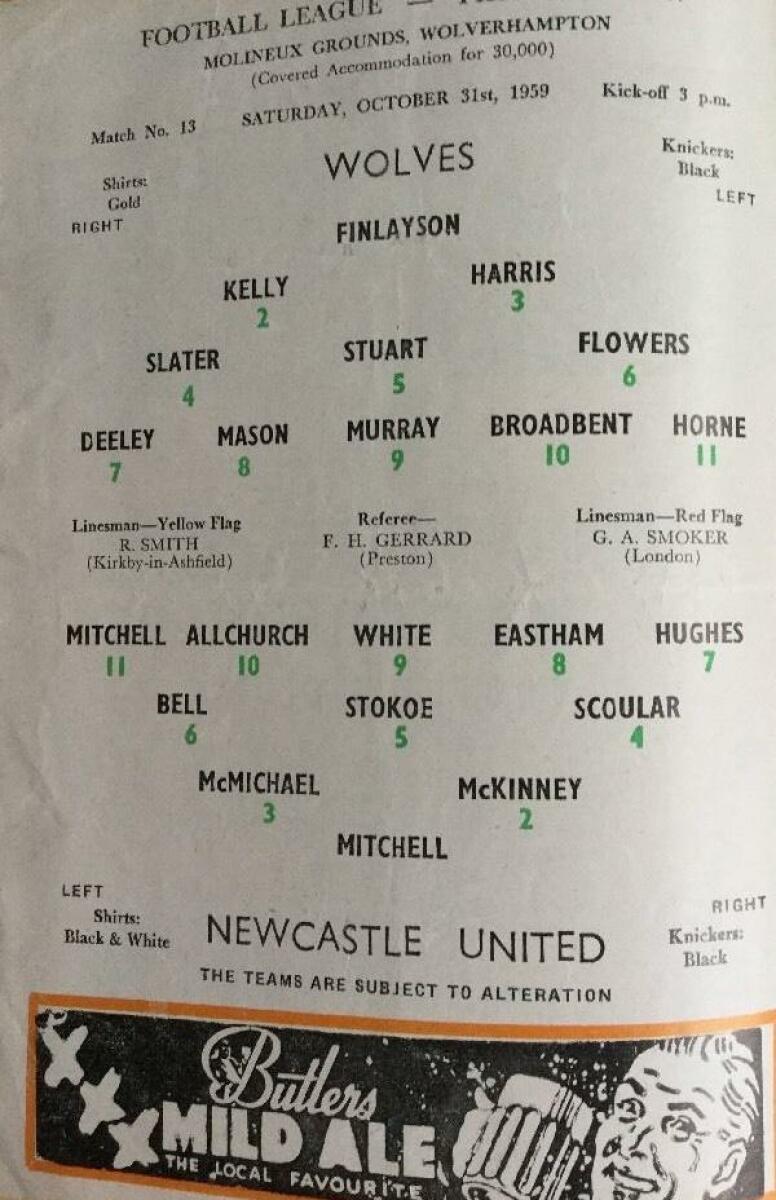 FOOTBALL LEAGUE —
MOLINEUX GROUNDS, WOLVERHAMPTON
(Covered Accommodation for 30,000)
Match No. 13 SATURDAY, OCTOBER 31st, 1959 Kick-off 3 p.m.
Shirts: Gold WOLVES Knickers: Black
RIGHT LEFT
FINLAYSON
KELLY HARRIS
2 3
SLATER STUART FLOWERS
4 5 6
DEELEY MASON MURRAY BROADBENT HORNE
7 8 9 10 11
Linesman—Yellow Flag Referee— Linesman—Red Flag
R. SMITH F. H. GERRARD G. A. SMOKER
(Kirkby-in-Ashfield) (Preston) (London)
MITCHELL ALLCHURCH WHITE EASTHAM HUGHES
11 10 9 8 7
BELL STOKOE SCOULAR
6 5 4
McMICHAEL McKINNEY
3 2
MITCHELL
LEFT RIGHT
Shirts: Black & White NEWCASTLE UNITED Knickers: Black
THE TEAMS ARE SUBJECT TO ALTERATION
Butlers
MILD ALE
THE LOCAL FAVOURITE